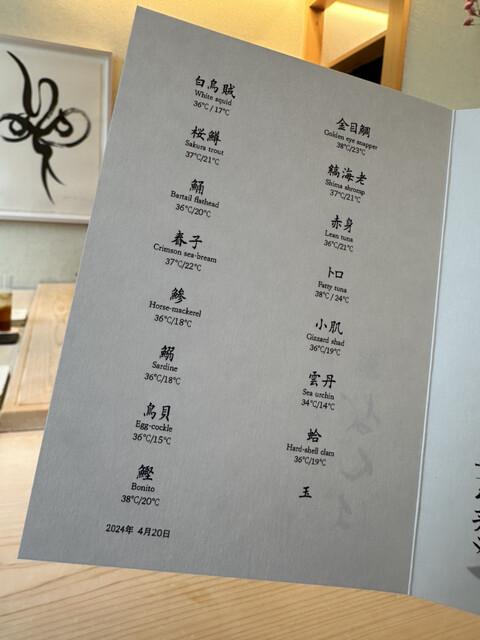 白烏賊
White squid
36℃ / 17℃
桜鱒
Sakura trout
37℃/21℃
鯒
Bartail flathead
36℃/20℃
春子
Crimson sea-bream
37℃/22℃
鯵
Horse-mackerel
36℃/18℃
鰯
Sardine
36℃/18℃
鳥貝
Egg-cockle
36℃/15℃
鰹
Bonito
38℃/20℃
2024年 4月20日
金目鯛
Golden eye snapper
38℃/23℃
縞海老
Shima shromp
37℃/21℃
赤身
Lean tuna
36℃/21℃
トロ
Fatty tuna
38℃ / 24℃
小肌
Gizzard shad
36℃/19℃
雲丹
Sea urchin
34℃/14℃
蛤
Hard-shell clam
36℃/19℃
玉